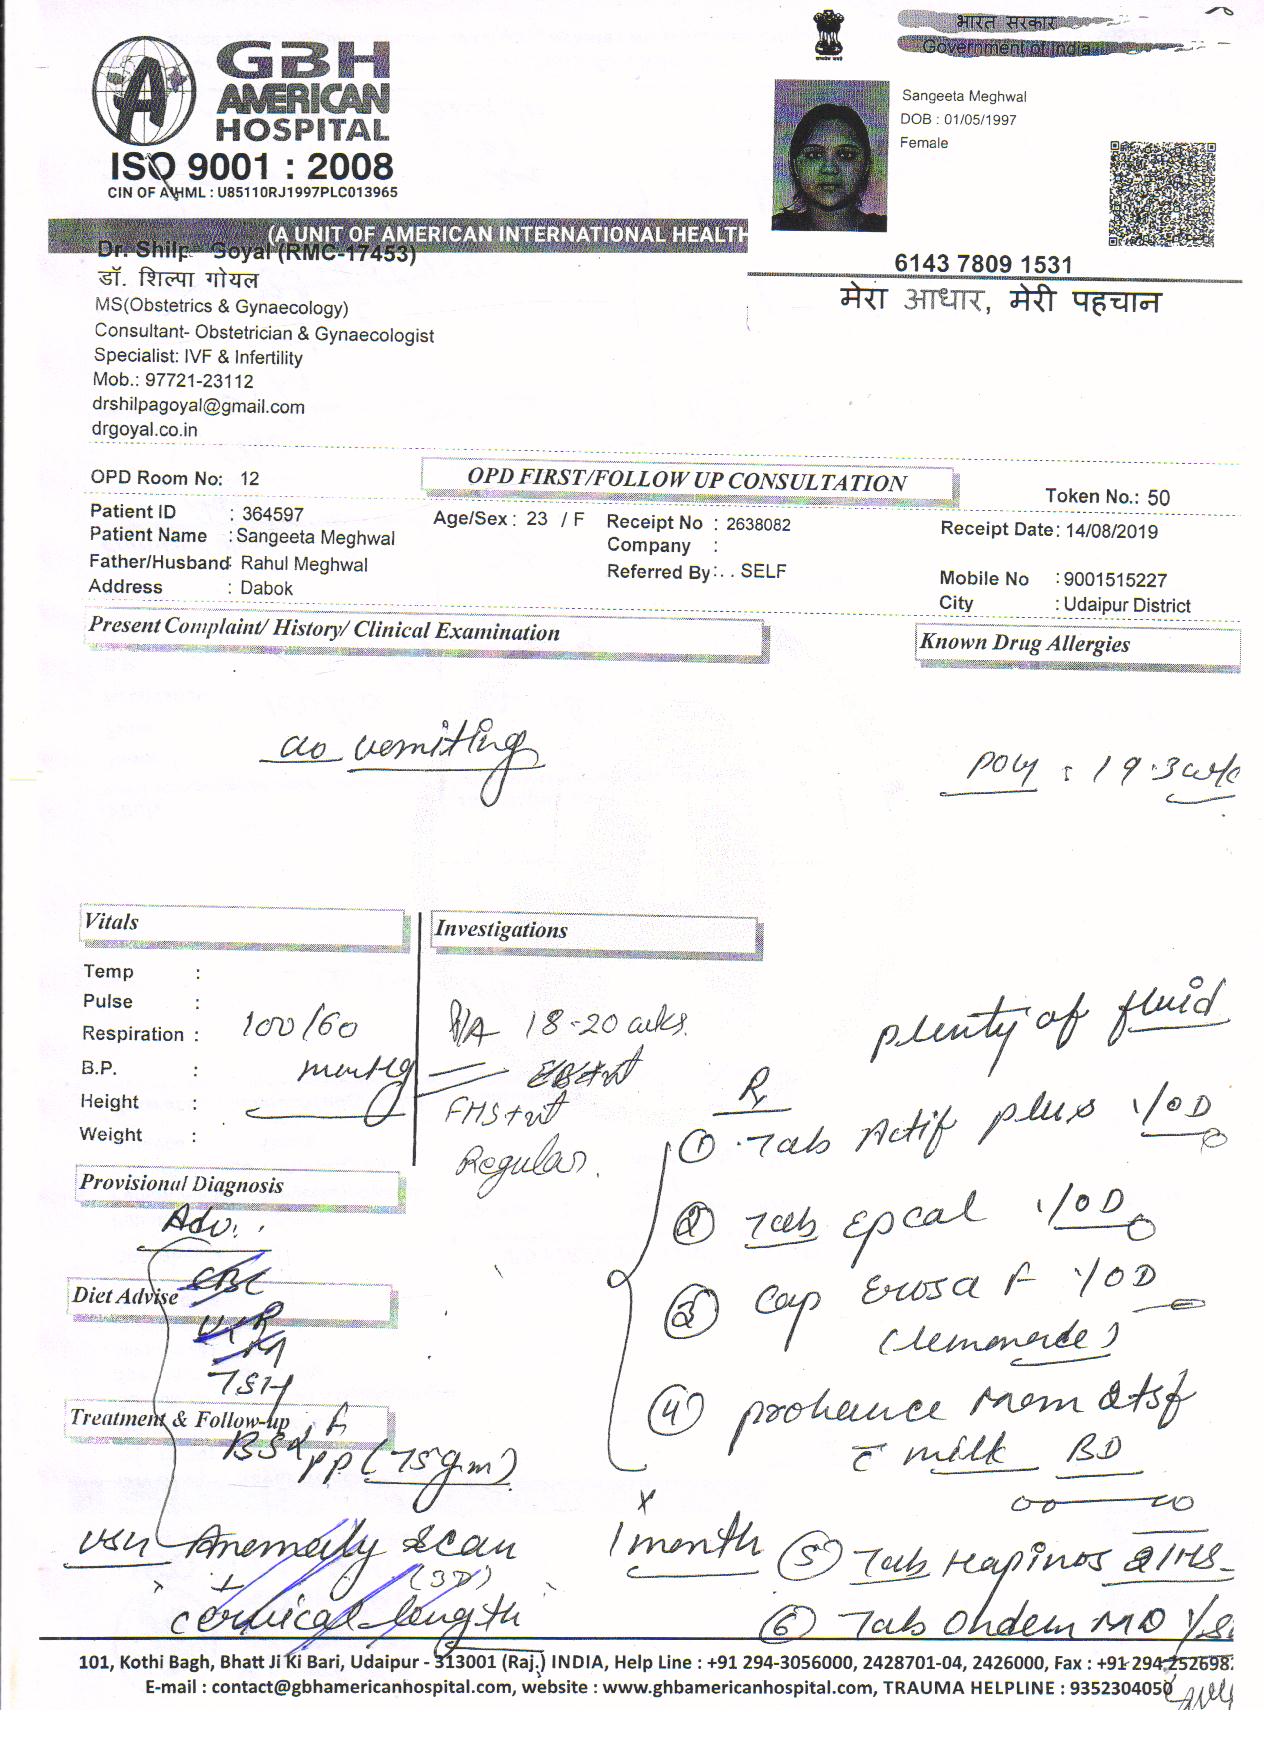 GBH
AMERICAN
HOSPITAL
ISO 9001 : 2008
CIN OF AHML : U85110RJ1997PLC013965
(A UNIT OF AMERICAN INTERNATIONAL HEALTH
भारत सरकार
Government of India
Sangeeta Meghwal
DOB : 01/05/1997
Female
6143 7809 1531
मेरा आधार, मेरी पहचान
Dr. Shilpa Goyal (RMC-17453)
डॉ. शिल्पा गोयल
MS(Obstetrics & Gynaecology)
Consultant- Obstetrician & Gynaecologist
Specialist: IVF & Infertility
Mob.: 97721-23112
drshilpagoyal@gmail.com
drgoyal.co.in
OPD Room No: 12
OPD FIRST/FOLLOW UP CONSULTATION
Token No.: 50
Patient ID : 364597
Age/Sex : 23 / F
Receipt No : 2638082
Receipt Date: 14/08/2019
Patient Name : Sangeeta Meghwal
Company :
Father/Husband: Rahul Meghwal
Referred By: . . SELF
Mobile No : 9001515227
Address : Dabok
City : Udaipur District
Present Complaint/ History/ Clinical Examination
Known Drug Allergies
c/o vomiting
POG : 19.3 wks
Vitals
Investigations
Temp :
Pulse :
Respiration :
B.P. :
Height :
Weight :
100/60
mmHg
P/A 18-20 wks.
FHS+nt
Regular.
plenty of fluid
Rx
① Tab Actif plus 1/OD
② Tab Epcal 1/OD
③ Cap Erosa F 1/OD
(lemonade)
④ prohance Mom 2tsf
c milk BD
x
1 month
⑤ Tab 2/HS
⑥ Tab Ondem MD
Provisional Diagnosis
Adv.
CBC
Diet Advise
TSH
Treatment & Follow-up
BSL F
PP (75gm)
USG Anomaly scan
(3D)
+
cervical length
101, Kothi Bagh, Bhatt Ji Ki Bari, Udaipur - 313001 (Raj.) INDIA, Help Line : +91 294-3056000, 2428701-04, 2426000, Fax : +91 294-252698
E-mail : contact@gbhamericanhospital.com, website : www.ghbamericanhospital.com, TRAUMA HELPLINE : 9352304050